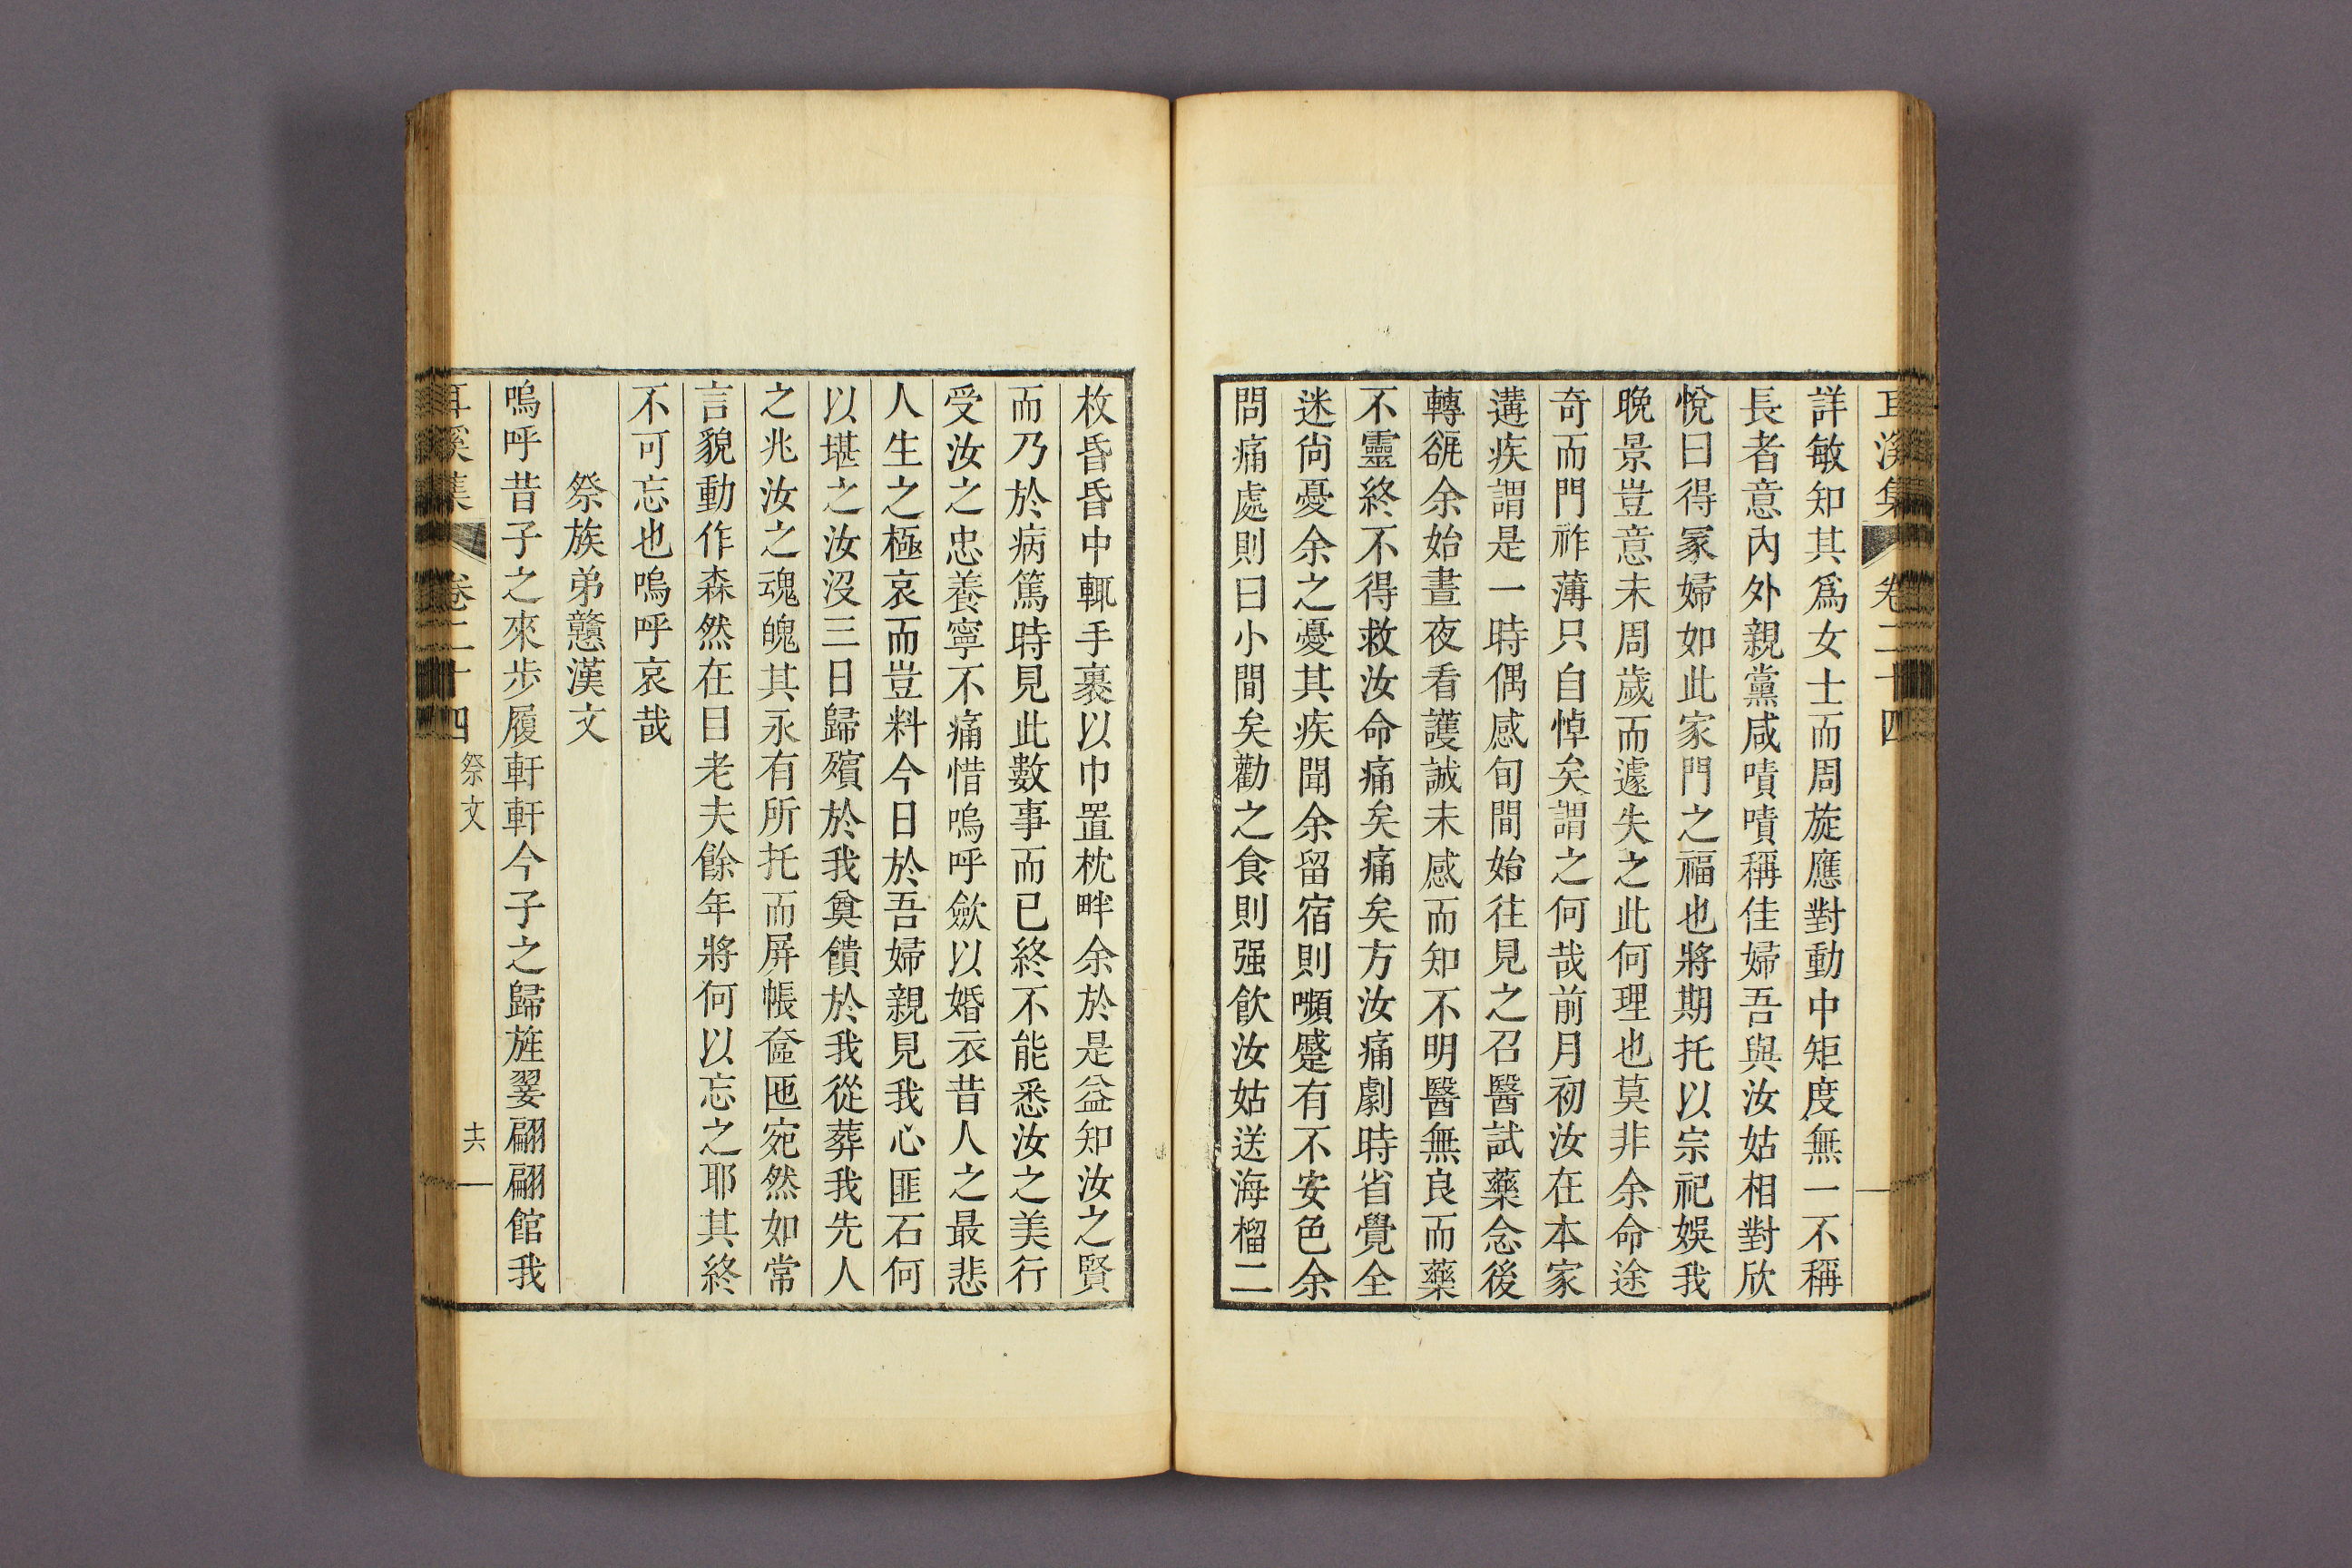 耳溪集 卷二十四
詳敏知其爲女士而周旋應對動中矩度無一不稱
長者意內外親黨咸嘖嘖稱佳婦吾與汝姑相對欣
悅曰得冢婦如此家門之福也將期托以宗祀娛我
晩景豈意未周歲而遽失之此何理也莫非余命途
奇而門祚薄只自悼矣謂之何哉前月初汝在本家
遘疾謂是一時偶感旬間始往見之召醫試藥念後
轉㞃余始晝夜看護誠未感而知不明醫無良而藥
不靈終不得救汝命痛矣痛矣方汝痛劇時省覺全
迷尙憂余之憂其疾聞余留宿則嚬蹙有不安色余
問痛處則曰小間矣勸之食則强飮汝姑送海榴二
枚昏昏中輒手裹以巾置枕畔余於是益知汝之賢
而乃於病篤時見此數事而已終不能悉汝之美行
受汝之忠養寧不痛惜嗚呼歛以婚衣昔人之最悲
人生之極哀而豈料今日於吾婦親見我心匪石何
以堪之汝沒三日歸殯於我奠饋於我從葬我先人
之兆汝之魂魄其永有所托而屏帳奩匜宛然如常
言貌動作森然在目老夫餘年將何以忘之耶其終
不可忘也嗚呼哀哉
祭族弟戇漢文
嗚呼昔子之來步履軒軒今子之歸旌翣翩翩館我
耳溪集 卷二十四 祭文 十六